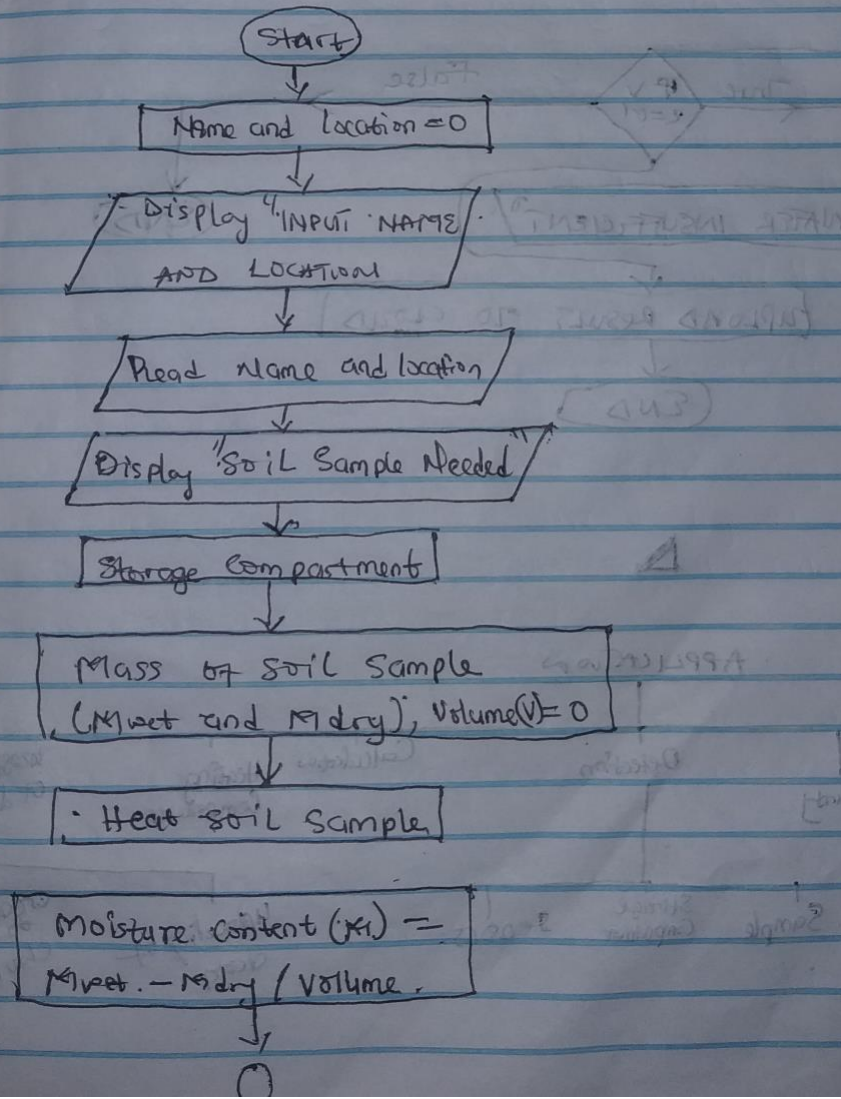 Start
Name and location = 0
Display "INPUT NAME
AND LOCATION
Read Name and location
Display "Soil Sample Needed"
Storage Compartment
Mass of Soil Sample
(Mwet and Mdry), Volume(V) = 0
Heat Soil Sample
Moisture content (M) =
Mwet - Mdry / Volume.